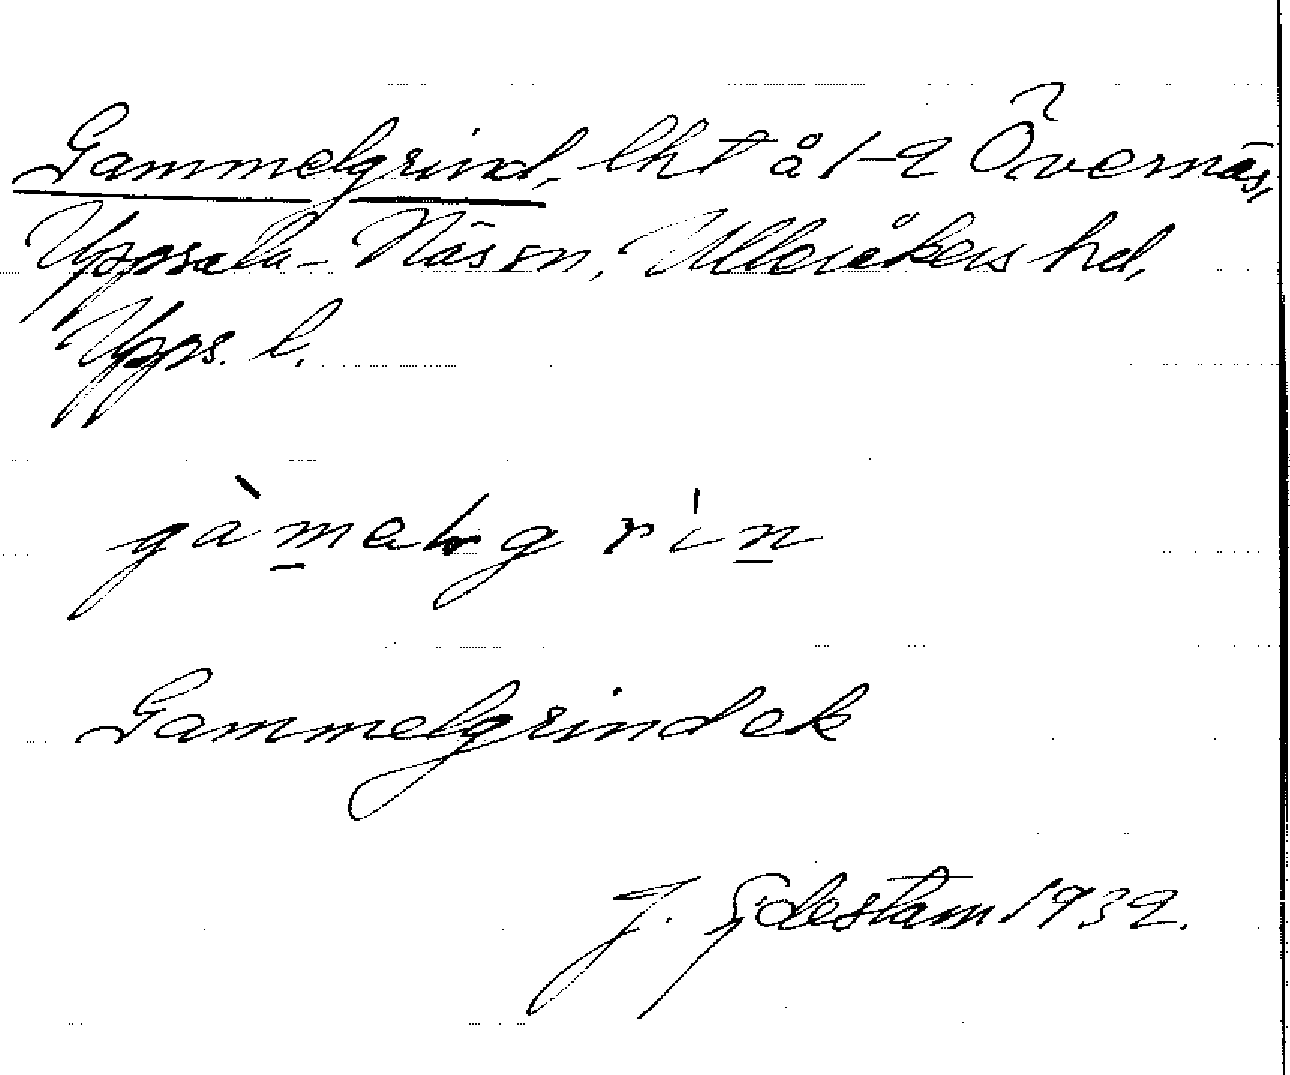 Gammelgrind, lht å 1-2 Övernäs,
Uppsala-Näs sn, Ulleråkers hd,
Upps. l.
gàmalgrin
Gammelgrind ek
J. 1932.